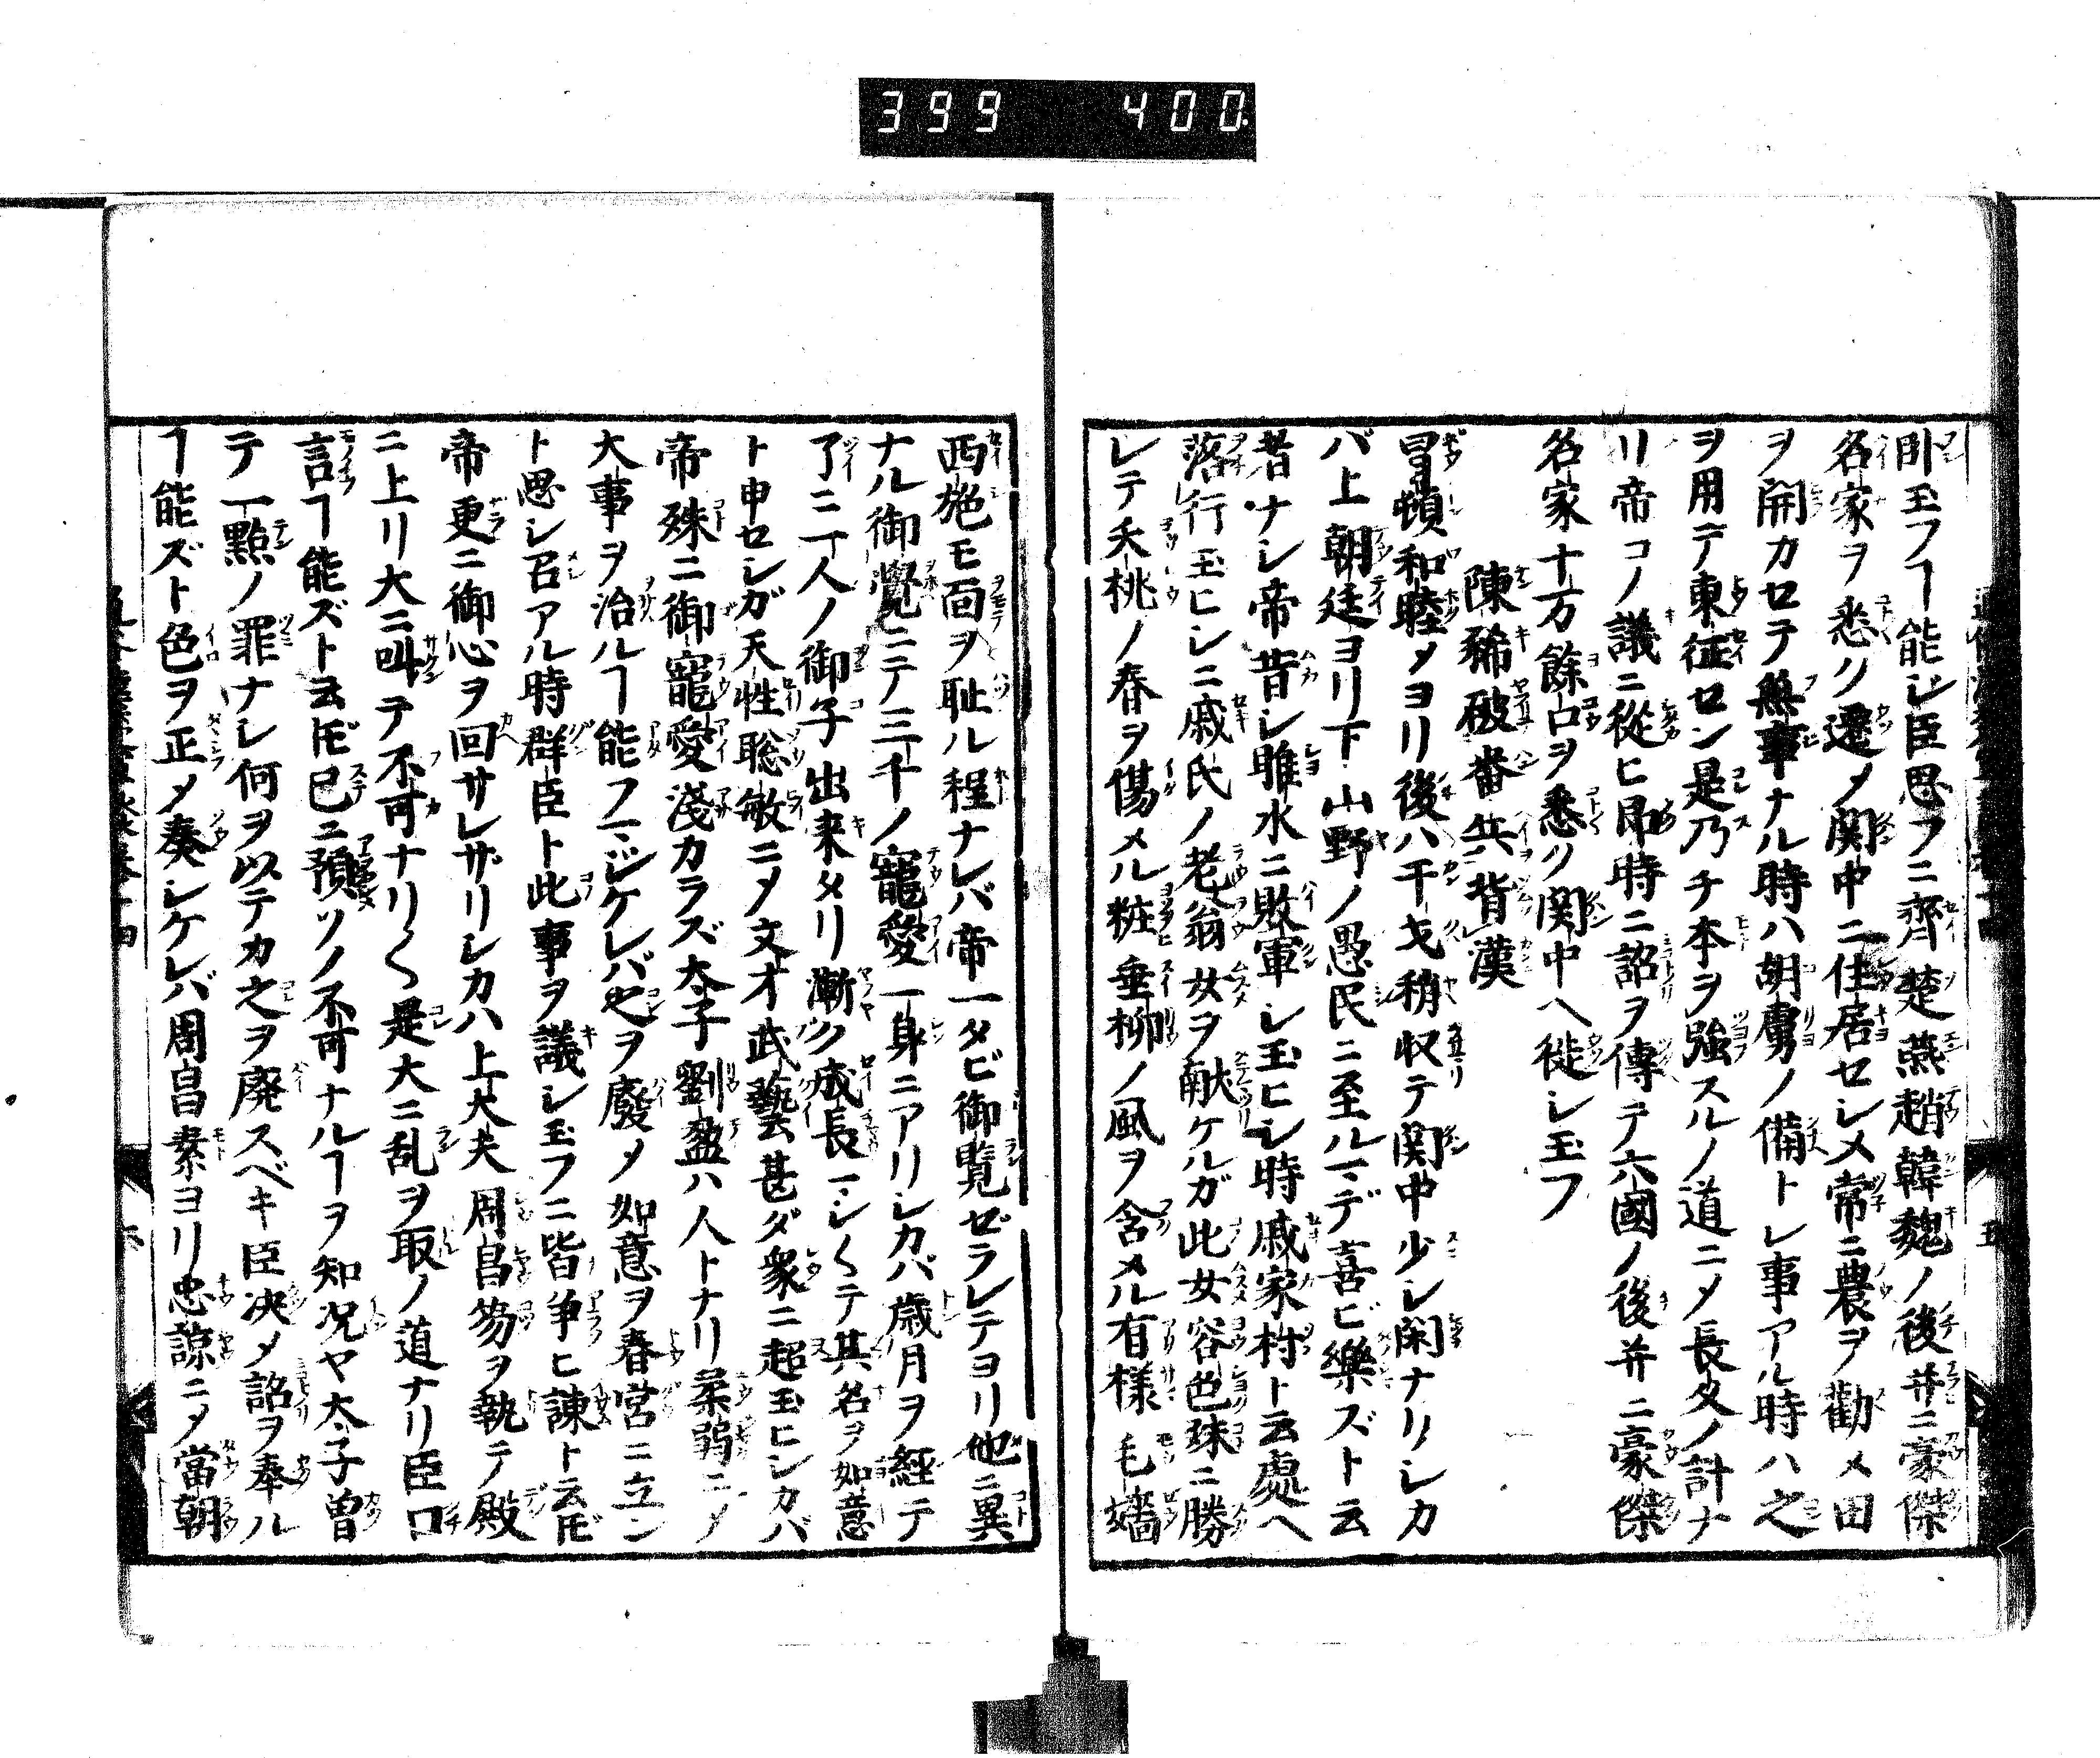 399 400
臥玉フヿ能ジ臣思フニ齊楚燕趙韓魏ノ後并ニ豪傑
名家ヲ悉ク遷メ関中ニ住居セシメ常ニ農ヲ勸メ田
ヲ開カセテ無事ナル時ハ胡虜ノ備トレ事アル時ハ之
ヲ用テ東征セン是乃チ本ヲ強スルノ道ニメ長久ノ計ナ
リ帝コノ議ニ從ヒ即時ニ詔ヲ傳テ六國ノ後并ニ豪傑
名家十万餘口ヲ悉ク関中ヘ徙シ玉フ
陳豨破番兵背漢
冒頓和睦メヨリ後ハ干戈稍収テ関中少シ閑ナリシカ
バ上朝廷ヨリ下山野ノ愚民ニ至ルマデ喜ビ樂ズト云
者ナシ帝昔シ睢水ニ敗軍シ玉ヒシ時戚家村ト云處ヘ
落行玉ヒシニ戚氏ノ老翁女ヲ献ケルガ此女容色殊ニ勝
レテ夭桃ノ春ヲ傷メル粧垂柳ノ風ヲ含メル有様毛嬙
西施モ面ヲ耻ル程ナレバ帝一タビ御覧ゼラレテヨリ他ニ異
ナル御覺ニテ三千ノ寵愛一身ニアリシカバ歳月ヲ經テ
了ニ一人ノ御子出来タリ漸ク成長マシ〱テ其名ヲ如意
ト申セシガ天性聡敏ニメ文才武藝甚ダ衆ニ超玉ヒシカバ
帝殊ニ御寵愛淺カラズ太子劉盈ハ人トナリ柔弱ニメ
大事ヲ治ルヿ能フマジケレバ之ヲ廢メ如意ヲ春宮ニ立ン
ト思シ召アル時群臣ト此事ヲ議シ玉フニ皆争ヒ諫ト云𪜈
帝更ニ御心ヲ回サレザリシカハ上大夫周昌笏ヲ執テ殿
ニ上リ大ニ叫テ不可ナリ〱是大ニ乱ヲ取ノ道ナリ臣口
言ヿ能ズト云𪜈已ニ預ソノ不可ナルヿヲ知况ヤ太子曽
テ一點ノ罪ナシ何ヲ以テカ之ヲ廃スベキ臣决メ詔ヲ奉ル
ヿ能ズト色ヲ正メ奏シケレバ周昌素ヨリ忠諒ニメ當朝